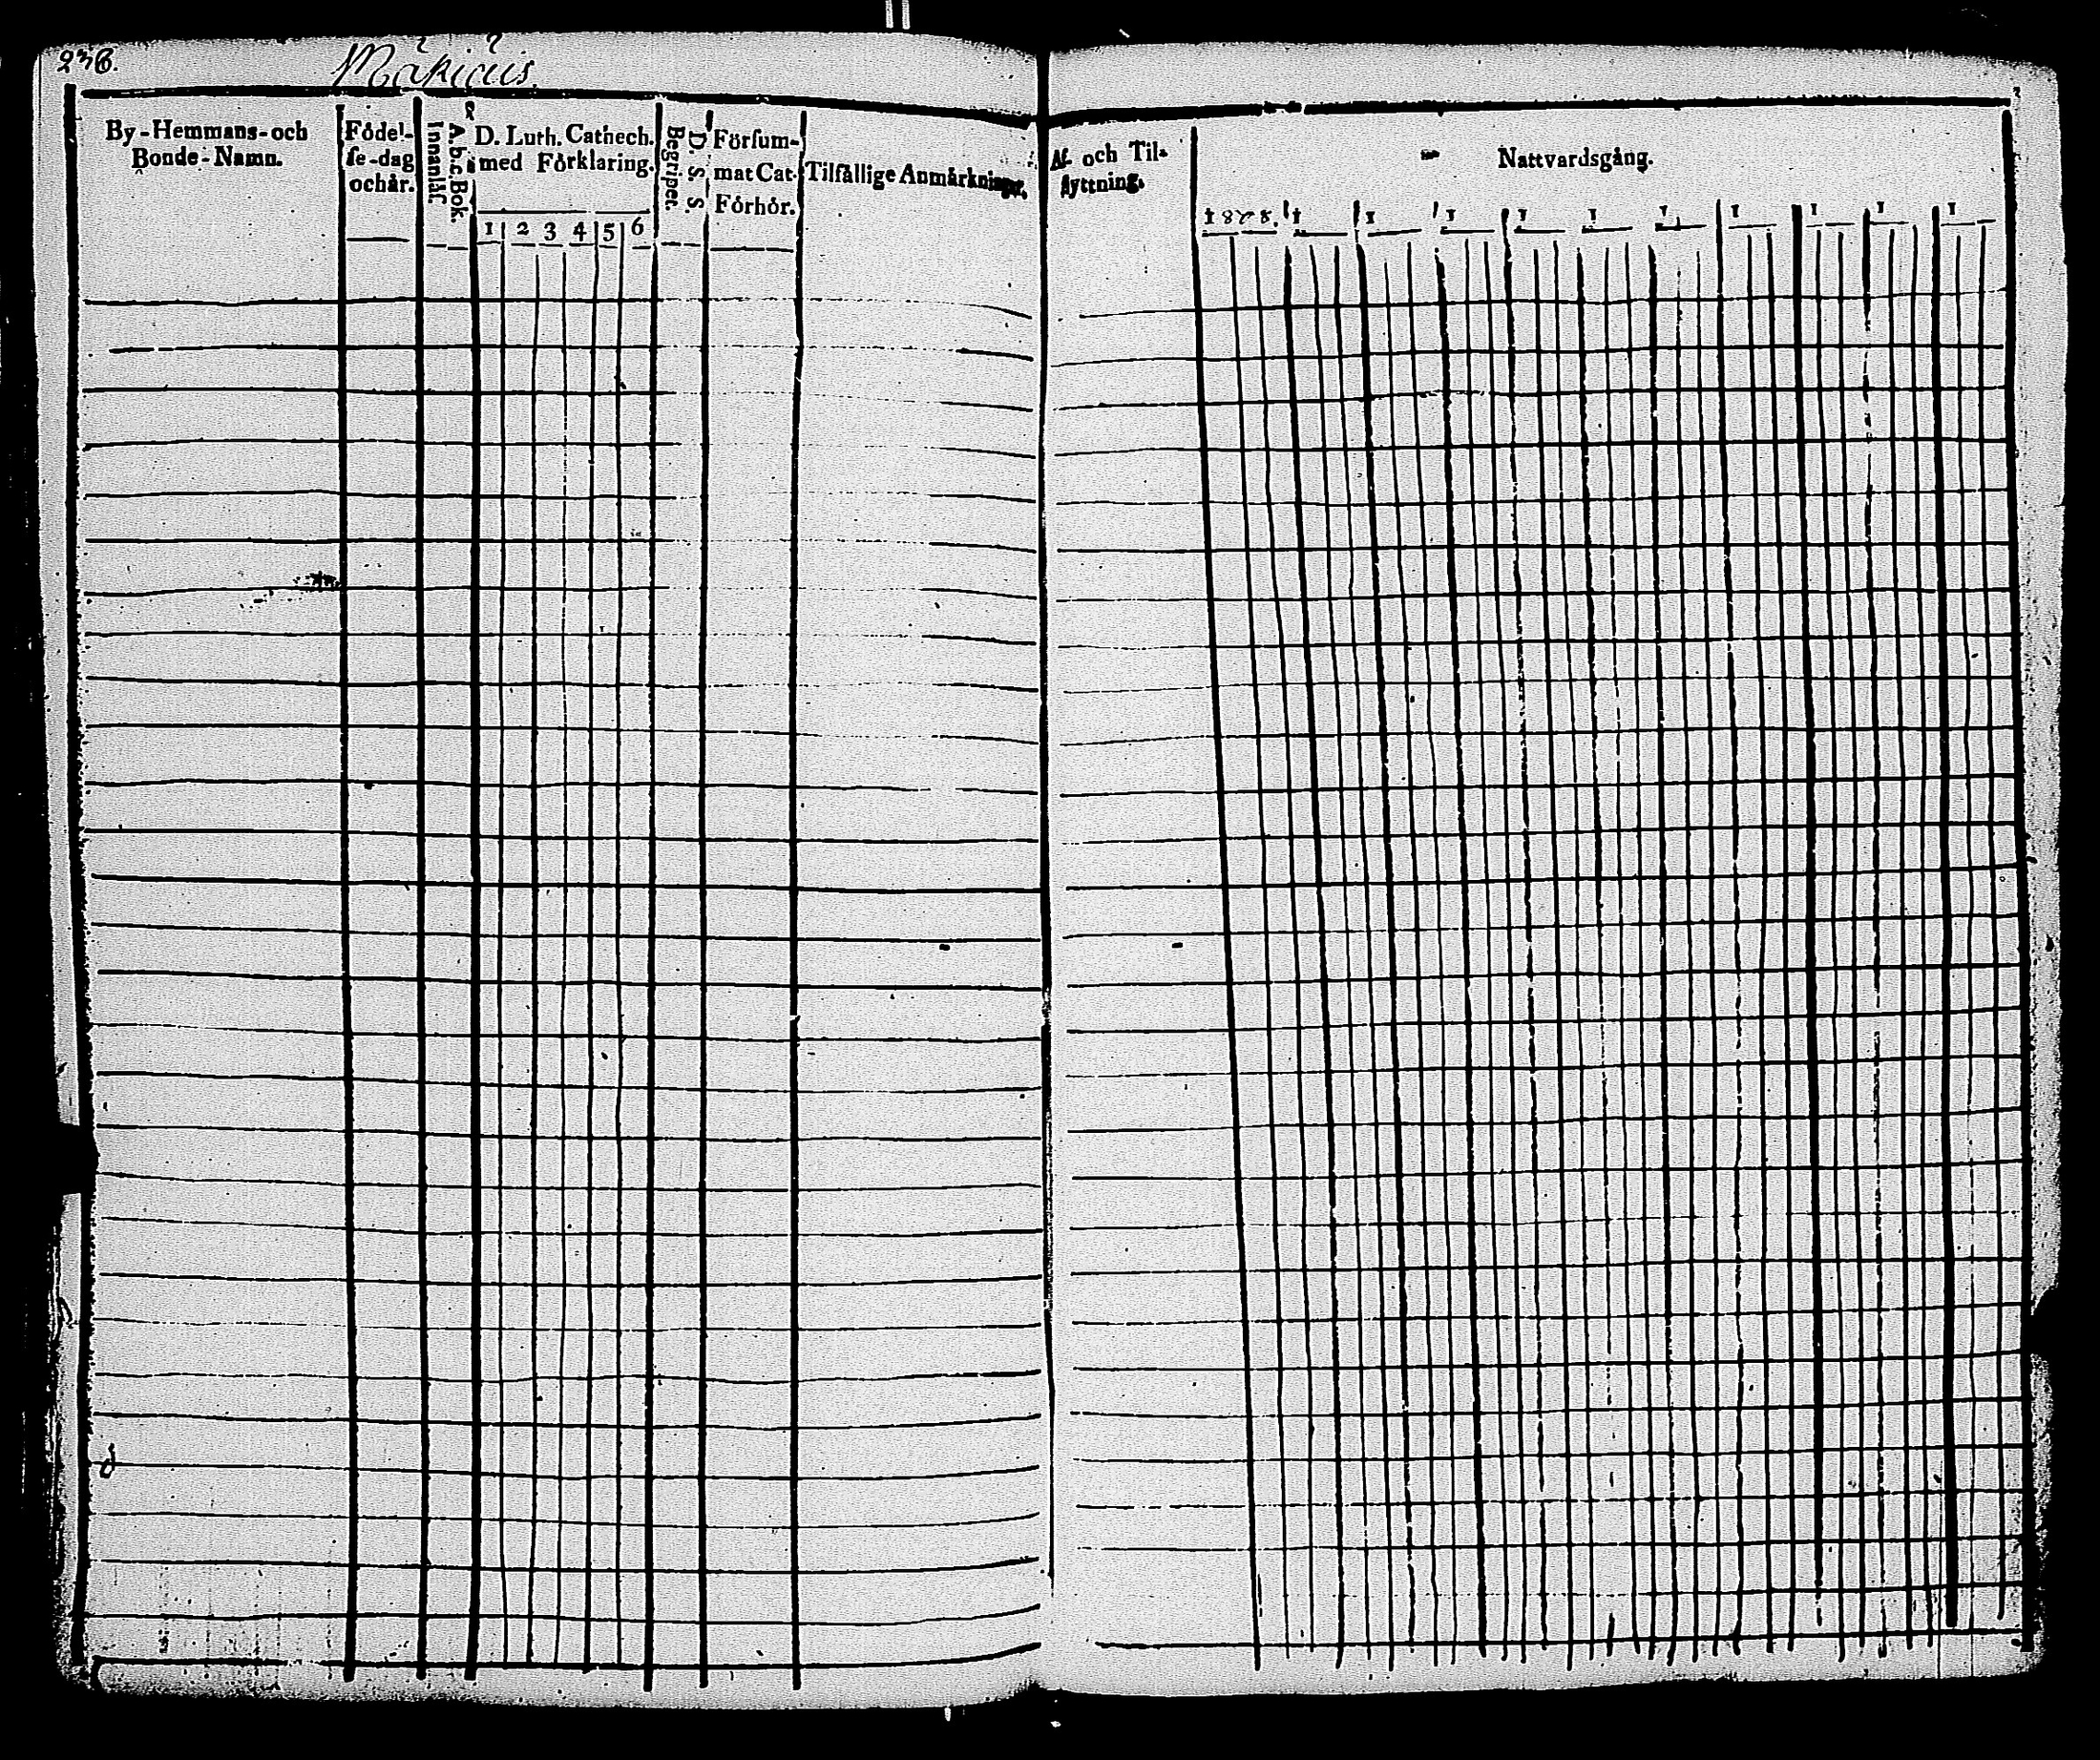 238.
Mäkiäis.
By-Hemmans-och
Bonde-Namn.
Födel-
se-dag
och år.
A.b.c. Bok.
Innanläs.
D. Luth. Cathech.
med Förklaring.
1 2 3 4 5 6
D. S. S.
Begripet.
Försum-
mat Cat.
Förhör.
Tilfällige Anmärkningar.
Af- och Til-
flyttning.
Nattvardsgång.
1 1 1 1 1 1 1 1 1 1